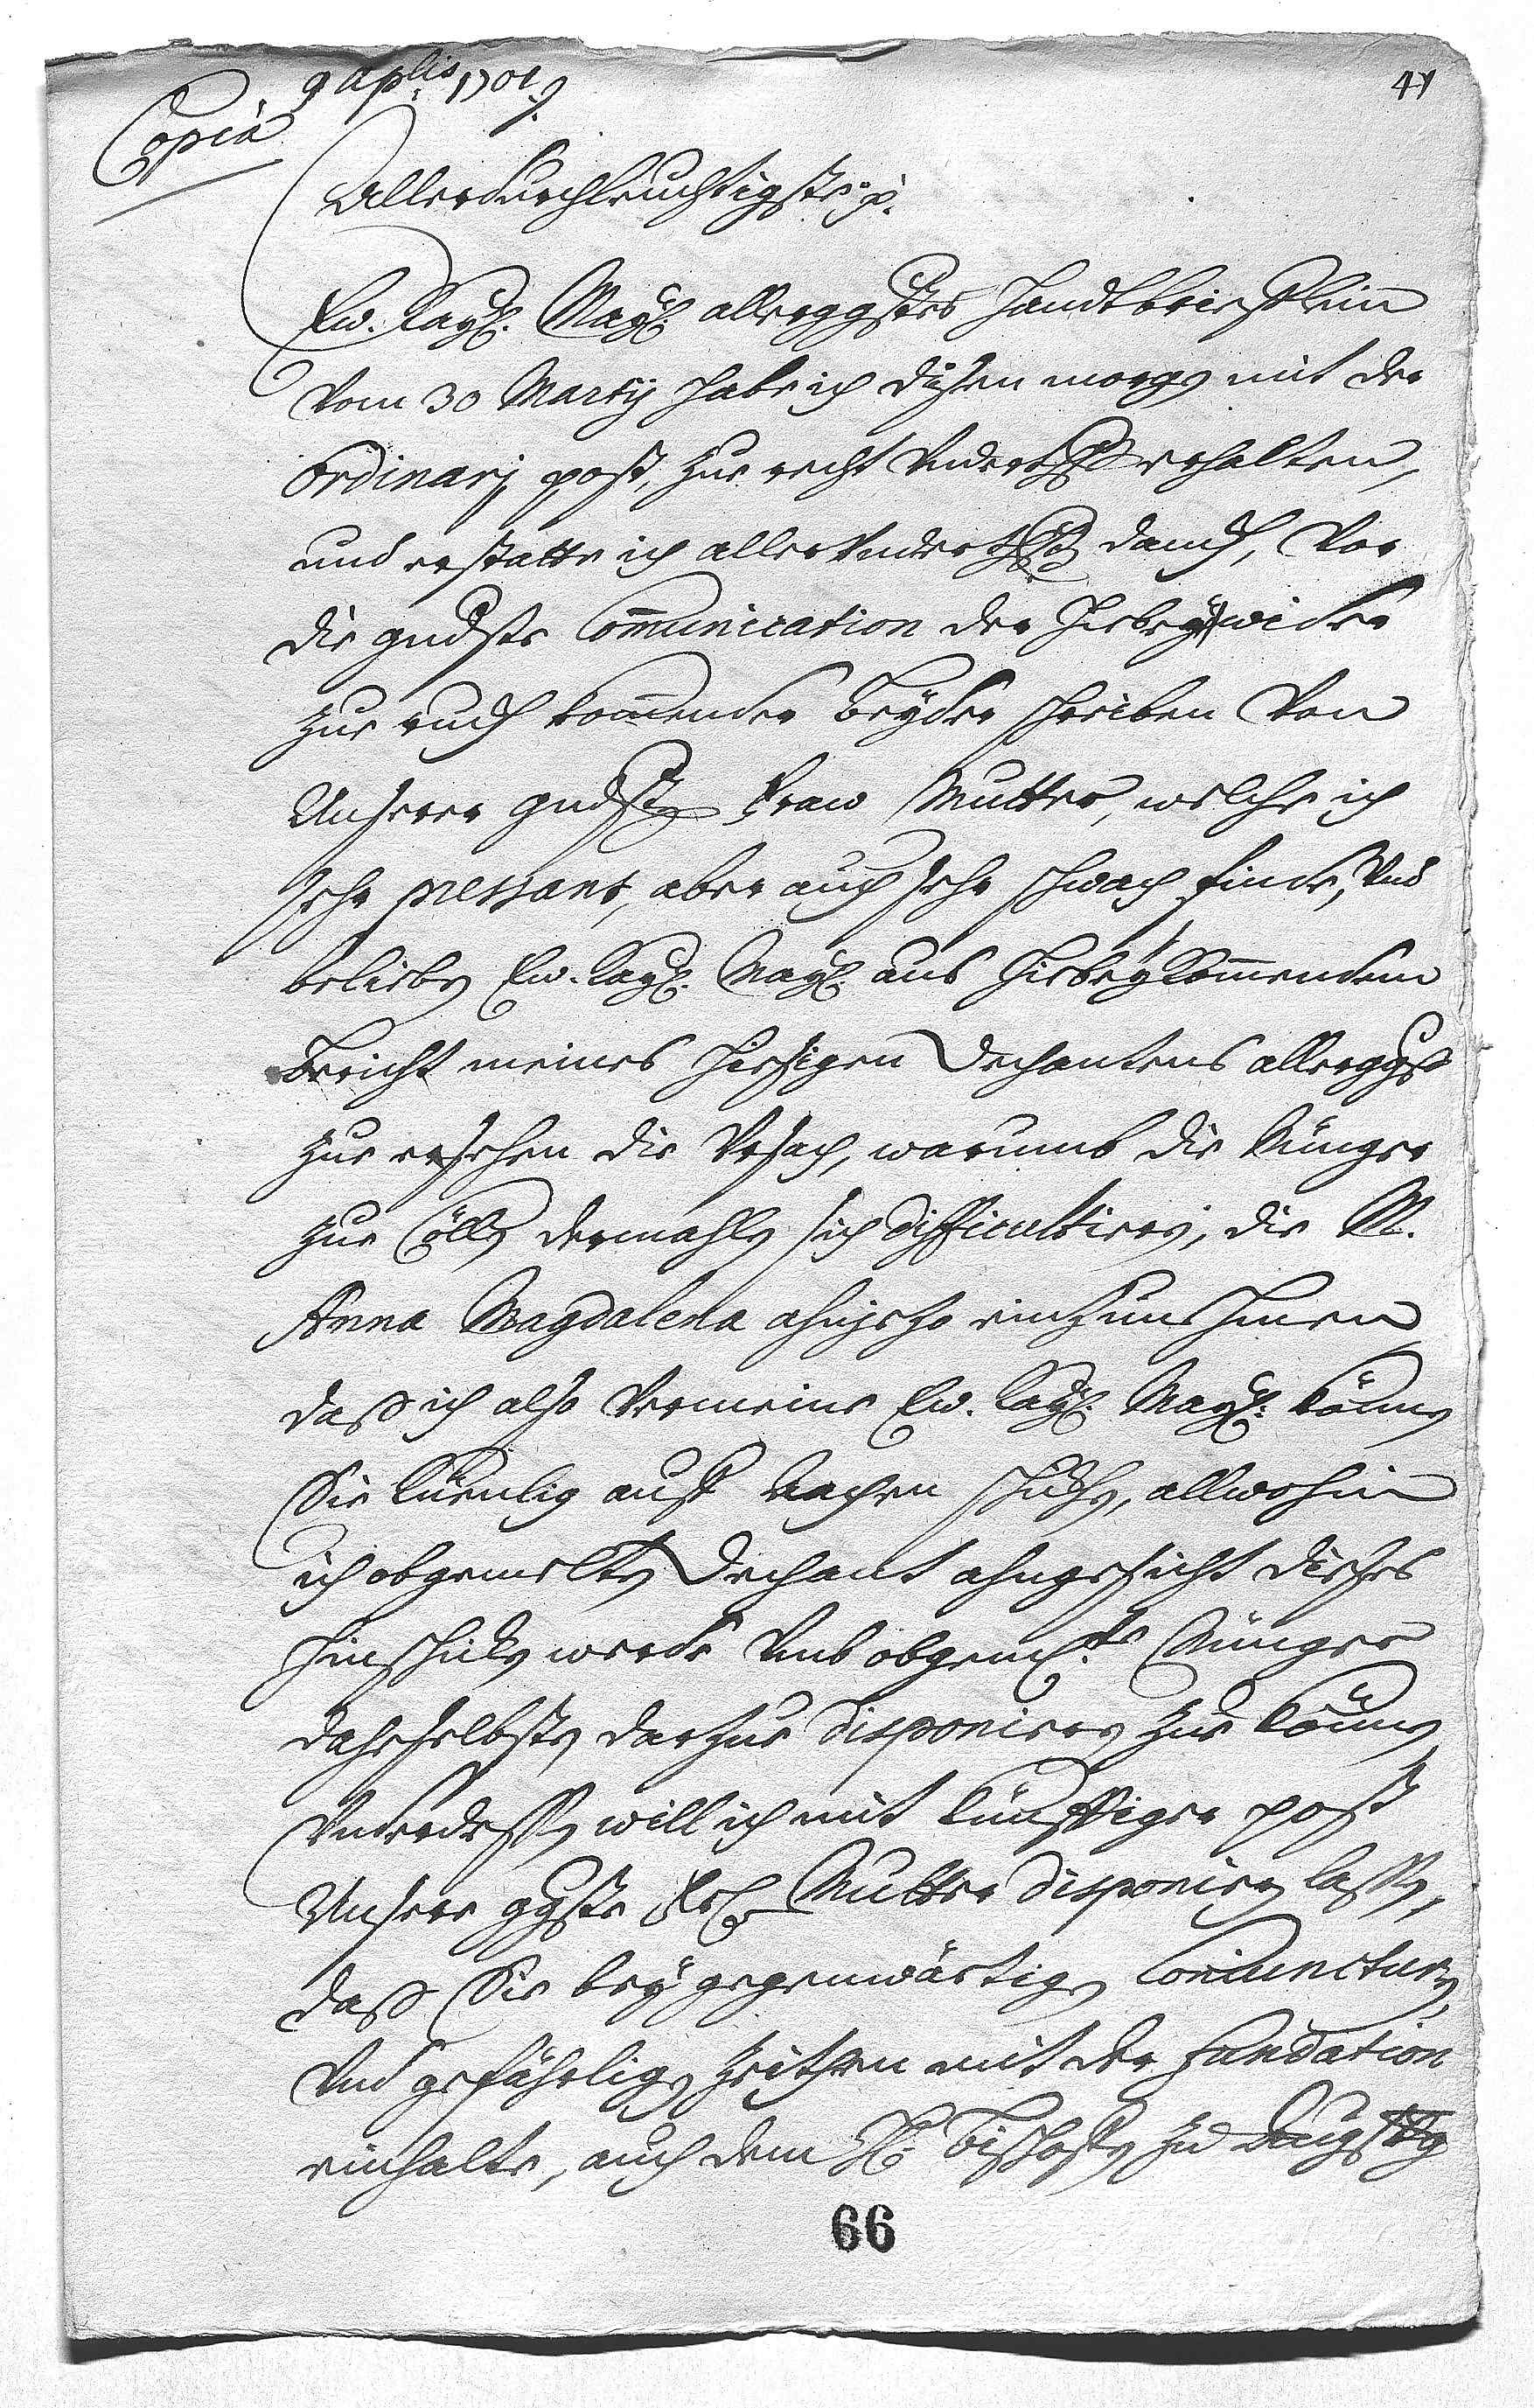 9 Aplis. 1701.
41
Copia
Allerdurchleuchtigste p.
Ew. Kayl. Mayl. allerggstes Handtbriefflein
vom 30 Martij habe ich disen morgen mit der
ordinarj post, zue recht underthgst erhalten,
und erstatte ich allerunderthgsten danck, vor
die gndste Communication der hiebey wider
zue ruck kommender beyder schreiben von
Unserer gndsten Fraw Mutter, welche ich
sehr pressant, aber auch sehr schwach finde, und
belieben Ew. Kayl. Mayl. aus hiebey kommendem
Bericht meines hiesigen Dechantens allerggst
zue ersehen die Ursach, warumb die Junger
zue Cölln dermahlen sich difficultiren, die M.
Anna Magdalena ahnjezo einzunehmen
daß ich also vermeine Ew. Kayl. Mayl. können
Sie kürtzlig auff Aachen schicken, allwohin
ich obgemelten Dechant ahngesicht dieses
hinschicken werde umb obgeml.te Junger
daheselbsten darzue disponiren zue können
Underdessen will ich mit künfftiger post
Unsere ggste Fr. Mutter disponiren lassen,
daß Sie bey gegenwärtigen Conjuncturen,
und gefährligen zeithen mit der fundation
einhalte, auch dem H. Bischoffen zu Augspurg
66